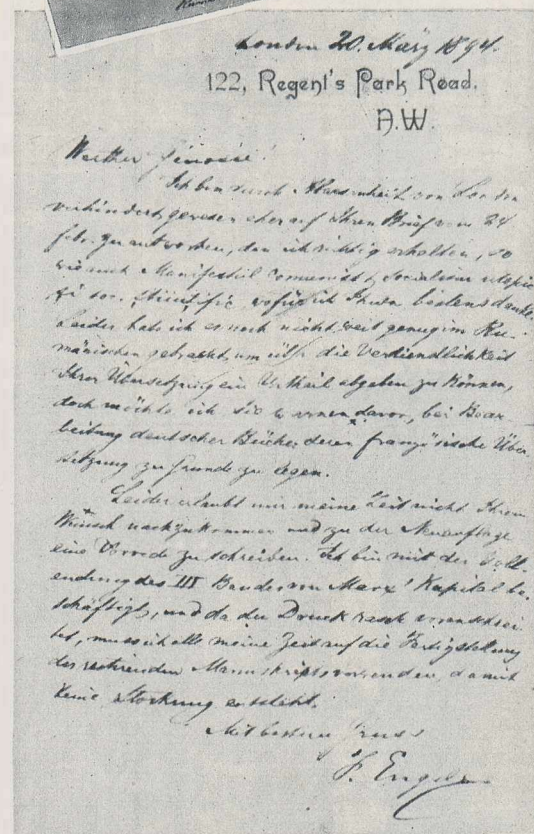 London 20. März 1894.
122, Regent's Park Road.
N.W.
Werther Genosse!
Ich bin durch Abwesenheit von London
verhindert gewesen eher auf Ihren Brief vom 24
Febr. zu antworten, den ich richtig erhalten, so
wie auch Manifestul Comunist & Socialism utopic
și soc. științific wofür ich Ihnen bestens danke.
Leider habe ich es noch nicht weit genug im Ru-
mänischen gebracht, um über die Verdienstlichkeit
Ihrer Übersetzung ein Urtheil abgeben zu können,
doch möchte ich Sie warnen davor, bei Bear-
beitung deutscher Bücher deren französische Über-
setzung zu Grunde zu legen.
Leider erlaubt mir meine Zeit nicht Ihrem
Wunsch nachzukommen und zu der Neuauflage
eine Vorrede zu schreiben. Ich bin mit der Voll-
endung des III Bandes von Marx' Kapital be-
schäftigt, und da der Druck rasch voranschrei-
tet, muss ich alle meine Zeit auf die Fertigstellung
des restirenden Manuskripts verwenden, damit
keine Stockung entsteht.
Mit bestem Gruss
F. Engels